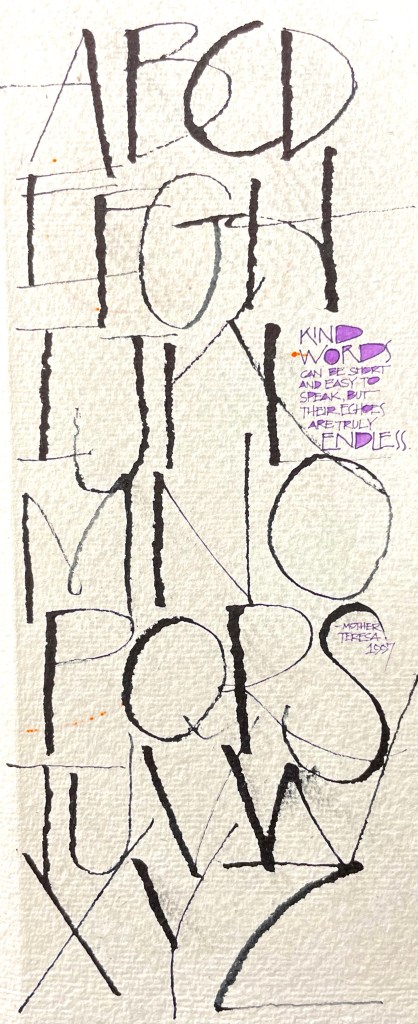 ABCD
EFGH
IJKL
KIND
WORDS
CAN BE SHORT
AND EASY TO
SPEAK, BUT
THEIR ECHOES
ARE TRULY
ENDLESS.
MNO
PQRS
-MOTHER
TERESA.
1997
TUVW
XYZ